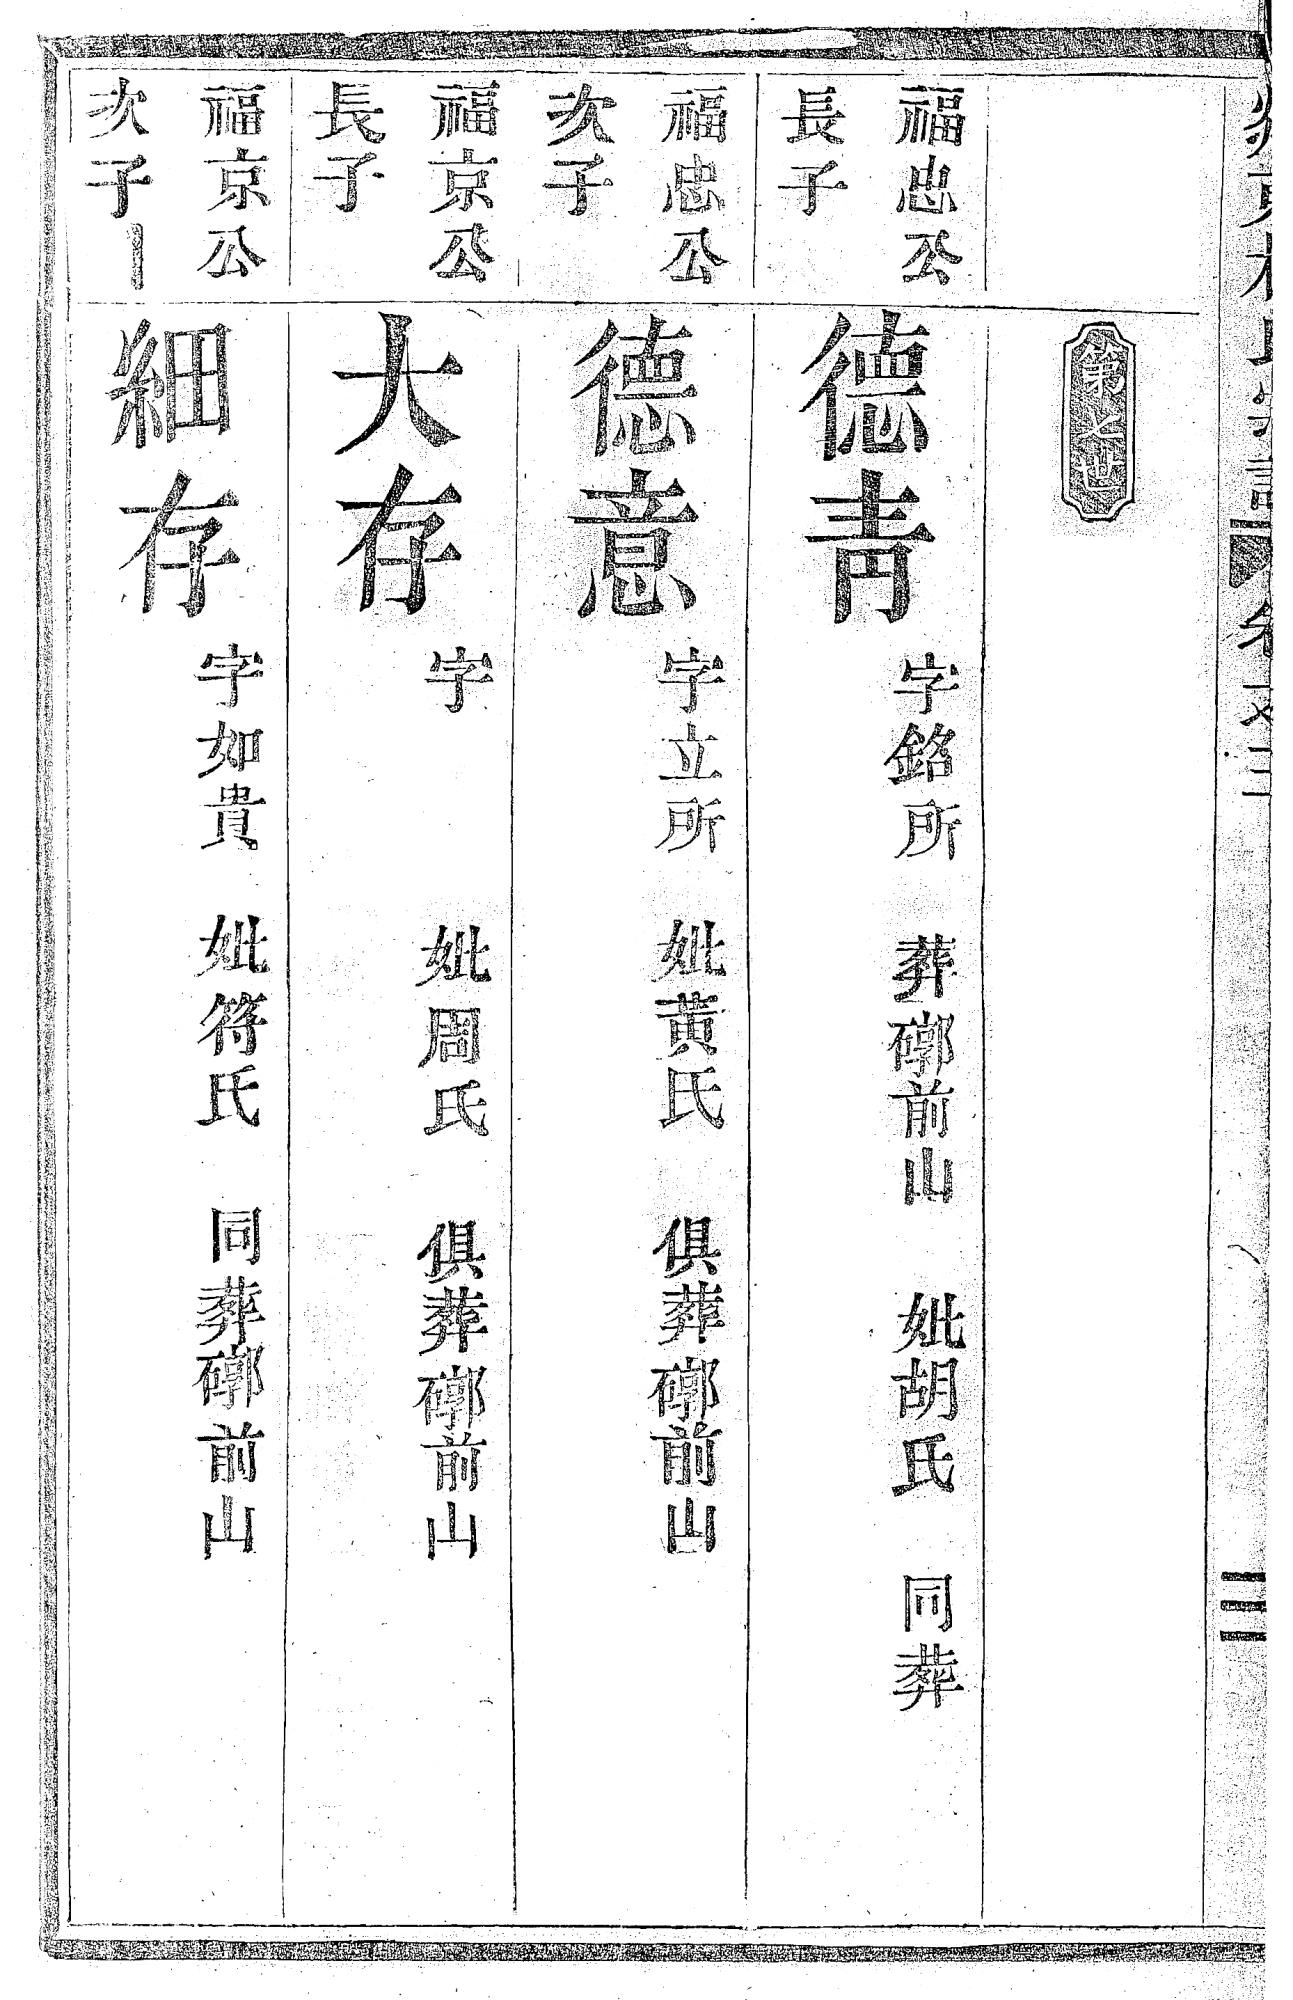 第七世
福忠公
長子
德青
字銘所 葬𥕏前山 妣胡氏 同葬
福忠公
次子
德意
字立所 妣黃氏 俱葬𥕏前山
福京公
長子
大存
字 妣周氏 俱葬𥕏前山
福京公
次子
細存
字如貴 妣符氏 同葬𥕏前山